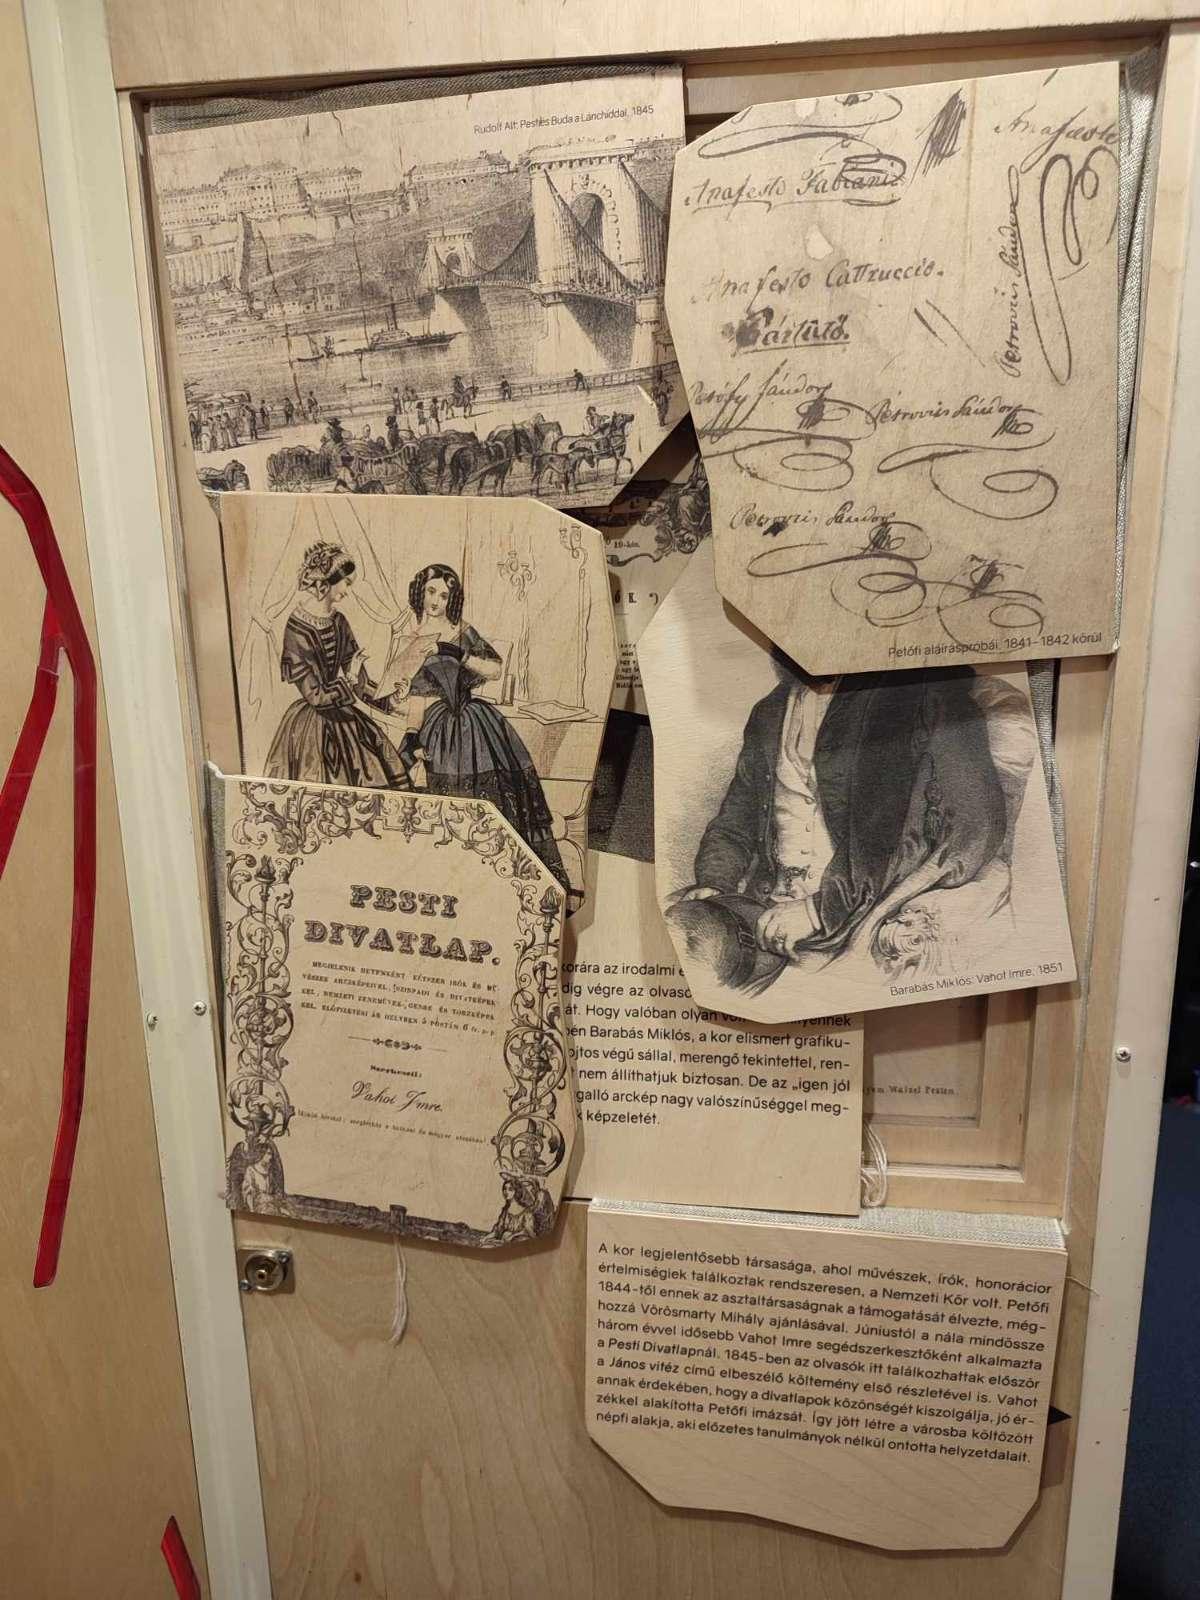 Rudolf Alt: Pest és Buda a Lánchíddal, 1845
Anafesto
Anafesto Fabianiz
Petrovics Sándor
Anafesto Cattruccio.
Pártütő.
Petőfy Sándor
Petrovics Sándor
Petrovics Sándor
Petőfi aláíráspróbái, 1841–1842 körül
19-kén.
Barabás Miklós: Vahot Imre, 1851
PESTI
DIVATLAP.
MEGJELENIK HETENKÉNT KÉTSZER IRÓK ÉS MŰ-
VÉSZEK ARCZKÉPEIVEL, SZINPADI ÉS DIVATKÉPEK
KEL, NEMZETI ZENEMŰVEK-, GENRE ÉS TORZKÉPEK
KEL. ELŐFIZETÉSI ÁR HELYBEN S POSTÁN 6 fr. p. p.
Szerkeszti:
Vahot Imre.
korára az irodalmi é
dig végre az olvasó
át. Hogy valóban olyan
bén Barabás Miklós, a kor elismert grafiku-
ojtos végű sállal, merengő tekintettel, ren-
t nem állíthatjuk biztosan. De az „igen jól
galló arckép nagy valószínűséggel meg-
k képzeletét.
Walzel Pesten
A kor legjelentősebb társasága, ahol művészek, írók, honorácior
értelmiségiek találkoztak rendszeresen, a Nemzeti Kör volt. Petőfi
1844-től ennek az asztaltársaságnak a támogatását élvezte, még-
hozzá Vörösmarty Mihály ajánlásával. Júniustól a nála mindössze
három évvel idősebb Vahot Imre segédszerkesztőként alkalmazta
a Pesti Divatlapnál. 1845-ben az olvasók itt találkozhattak először
a János vitéz című elbeszélő költemény első részletével is. Vahot
annak érdekében, hogy a divatlapok közönségét kiszolgálja, jó ér-
zékkel alakította Petőfi imázsát. Így jött létre a városba költözött
népfi alakja, aki előzetes tanulmányok nélkül ontotta helyzetdalait.